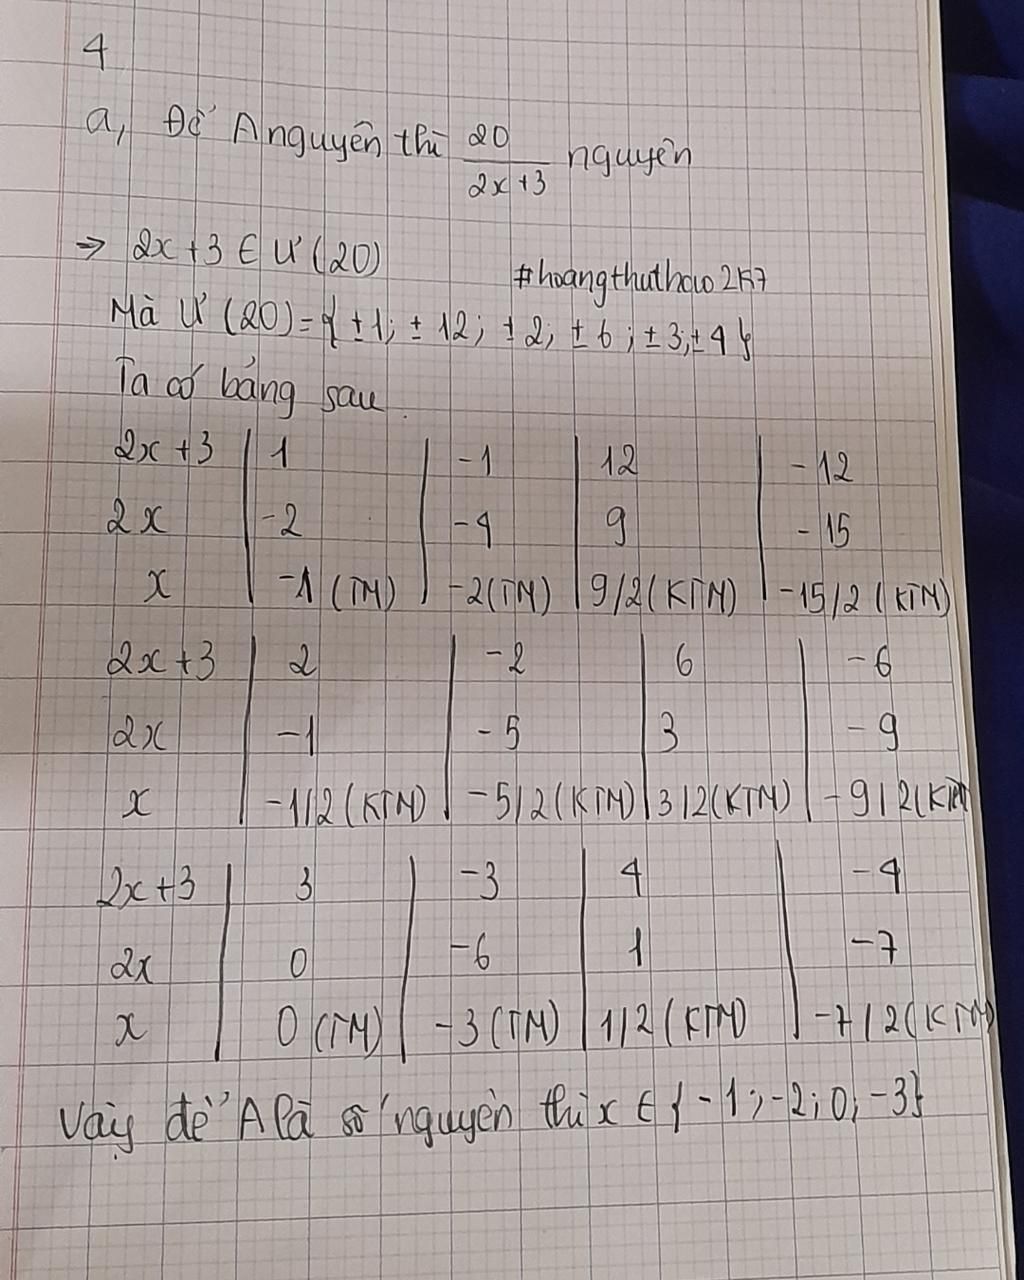 4
a, Để A nguyên thì 20/2x+3 nguyên
=> 2x+3 ∈ Ư(20)
#hoangthuthao2k7
Mà Ư(20)={±1; ±12; ±2; ±6; ±3;±4}
Ta có bảng sau.
2x+3 | 1 | -1 | 12 | -12
2x | -2 | -4 | 9 | -15
x | -1 (TM) | -2(TM) | 9/2(KTM) | -15/2 (KTM)
2x+3 | 2 | -2 | 6 | -6
2x | -1 | -5 | 3 | -9
x | -1/2(KTM) | -5/2(KTM) | 3/2(KTM) | -9/2(KTM
2x+3 | 3 | -3 | 4 | -4
2x | 0 | -6 | 1 | -7
x | 0 (TM) | -3 (TM) | 1/2(KTM) | -7/2(KTM)
Vậy để A là số nguyên thì x ∈ {-1;-2;0;-3}